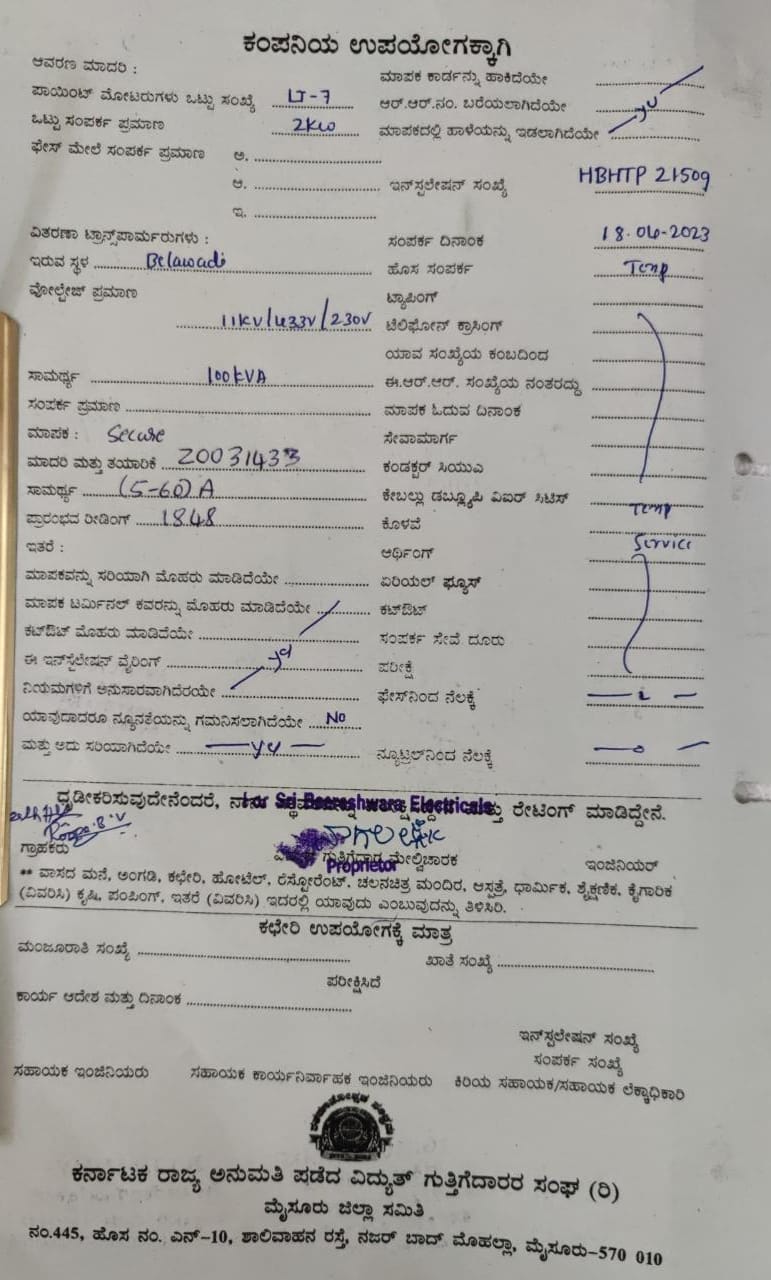 ಕಂಪನಿಯ ಉಪಯೋಗಕ್ಕಾಗಿ
ಆವರಣ ಮಾದರಿ : ಮಾಪಕ ಕಾರ್ಡನ್ನು ಹಾಕಿದೆಯೇ
ಪಾಯಿಂಟ್ ಮೋಟರುಗಳು ಒಟ್ಟು ಸಂಖ್ಯೆ LT-7 ಆರ್.ಆರ್.ನಂ. ಬರೆಯಲಾಗಿದೆಯೇ
ಒಟ್ಟು ಸಂಪರ್ಕ ಪ್ರಮಾಣ 2KW ಮಾಪಕದಲ್ಲಿ ಹಾಳೆಯನ್ನು ಇಡಲಾಗಿದೆಯೇ
ಫೇಸ್ ಮೇಲೆ ಸಂಪರ್ಕ ಪ್ರಮಾಣ ಅ.
ಆ. ಇನ್‌ಸ್ಟಲೇಷನ್ ಸಂಖ್ಯೆ HBHTP 21509
ಇ.
ವಿತರಣಾ ಟ್ರಾನ್ಸ್‌ಪಾರ್ಮರುಗಳು : ಸಂಪರ್ಕ ದಿನಾಂಕ 18.04.2023
ಇರುವ ಸ್ಥಳ Belawadi ಹೊಸ ಸಂಪರ್ಕ Temp
ವೋಲ್ಟೇಜ್ ಪ್ರಮಾಣ ಟ್ಯಾಪಿಂಗ್
11KV/433V/230V ಟೆಲಿಫೋನ್ ಕ್ರಾಸಿಂಗ್
ಯಾವ ಸಂಖ್ಯೆಯ ಕಂಬದಿಂದ
ಸಾಮರ್ಥ್ಯ 100KVA ಈ.ಆರ್.ಆರ್. ಸಂಖ್ಯೆಯ ನಂತರದ್ದು
ಸಂಪರ್ಕ ಪ್ರಮಾಣ ಮಾಪಕ ಓದುವ ದಿನಾಂಕ
ಮಾಪಕ : Secure ಸೇವಾಮಾರ್ಗ
ಮಾದರಿ ಮತ್ತು ತಯಾರಿಕೆ Z0031433 ಕಂಡಕ್ಟರ್ ಸಿಯುಎ
ಸಾಮರ್ಥ್ಯ (5-60)A ಕೇಬಲ್ಲು ಡಬ್ಲ್ಯೂಪಿ ವಿಐಆರ್ ಸಿಟಿಸ್
ಪ್ರಾರಂಭವ ರೀಡಿಂಗ್ 1848 ಕೊಳವೆ Temp
ಇತರೆ : ಆರ್ಥಿಂಗ್ Service
ಮಾಪಕವನ್ನು ಸರಿಯಾಗಿ ಮೊಹರು ಮಾಡಿದೆಯೇ ಏರಿಯಲ್ ಫ್ಯೂಸ್
ಮಾಪಕ ಟರ್ಮಿನಲ್ ಕವರನ್ನು ಮೊಹರು ಮಾಡಿದೆಯೇ ಕಟ್‌ಔಟ್
ಕಟ್‌ಔಟ್ ಮೊಹರು ಮಾಡಿದೆಯೇ ಸಂಪರ್ಕ ಸೇವೆ ದೂರು
ಈ ಇನ್‌ಸ್ಟಲೇಷನ್ ವೈರಿಂಗ್ ಪರೀಕ್ಷೆ
ನಿಯಮಗಳಿಗೆ ಅನುಸಾರವಾಗಿದೆರಯೇ ಫೇಸ್‌ನಿಂದ ನೆಲಕ್ಕೆ
ಯಾವುದಾದರೂ ನ್ಯೂನತೆಯನ್ನು ಗಮನಿಸಲಾಗಿದೆಯೇ No
ಮತ್ತು ಅದು ಸರಿಯಾಗಿದೆಯೇ ನ್ಯೂಟ್ರಲ್‌ನಿಂದ ನೆಲಕ್ಕೆ
ದೃಢೀಕರಿಸುವುದೇನೆಂದರೆ, ಮತ್ತು ರೇಟಿಂಗ್ ಮಾಡಿದ್ದೇನೆ.
For Sri Beereshwara Electricals
ಗ್ರಾಹಕರು ಗುತ್ತಿಗೆದಾರ ಮೇಲ್ವಿಚಾರಕ ಇಂಜಿನಿಯರ್
Proprietor
** ವಾಸದ ಮನೆ, ಅಂಗಡಿ, ಕಛೇರಿ, ಹೋಟೆಲ್, ರೆಸ್ಟೋರೆಂಟ್, ಚಲನಚಿತ್ರ ಮಂದಿರ, ಆಸ್ಪತ್ರೆ, ಧಾರ್ಮಿಕ, ಶೈಕ್ಷಣಿಕ, ಕೈಗಾರಿಕ
(ವಿವರಿಸಿ) ಕೃಷಿ, ಪಂಪಿಂಗ್, ಇತರೆ (ವಿವರಿಸಿ) ಇದರಲ್ಲಿ ಯಾವುದು ಎಂಬುವುದನ್ನು ತಿಳಿಸಿರಿ.
ಕಛೇರಿ ಉಪಯೋಗಕ್ಕೆ ಮಾತ್ರ
ಮಂಜೂರಾತಿ ಸಂಖ್ಯೆ ಖಾತೆ ಸಂಖ್ಯೆ
ಪರೀಕ್ಷಿಸಿದೆ
ಕಾರ್ಯ ಆದೇಶ ಮತ್ತು ದಿನಾಂಕ
ಇನ್‌ಸ್ಪಲೇಷನ್ ಸಂಖ್ಯೆ
ಸಂಪರ್ಕ ಸಂಖ್ಯೆ
ಸಹಾಯಕ ಇಂಜಿನಿಯರು ಸಹಾಯಕ ಕಾರ್ಯನಿರ್ವಾಹಕ ಇಂಜಿನಿಯರು ಕಿರಿಯ ಸಹಾಯಕ/ಸಹಾಯಕ ಲೆಕ್ಕಾಧಿಕಾರಿ
ಕರ್ನಾಟಕ ರಾಜ್ಯ ಅನುಮತಿ ಪಡೆದ ವಿದ್ಯುತ್ ಗುತ್ತಿಗೆದಾರರ ಸಂಘ (ರಿ)
ಮೈಸೂರು ಜಿಲ್ಲಾ ಸಮಿತಿ
ನಂ.445, ಹೊಸ ನಂ. ಎನ್–10, ಶಾಲಿವಾಹನ ರಸ್ತೆ, ನಜರ್ ಬಾದ್ ಮೊಹಲ್ಲಾ, ಮೈಸೂರು–570 010